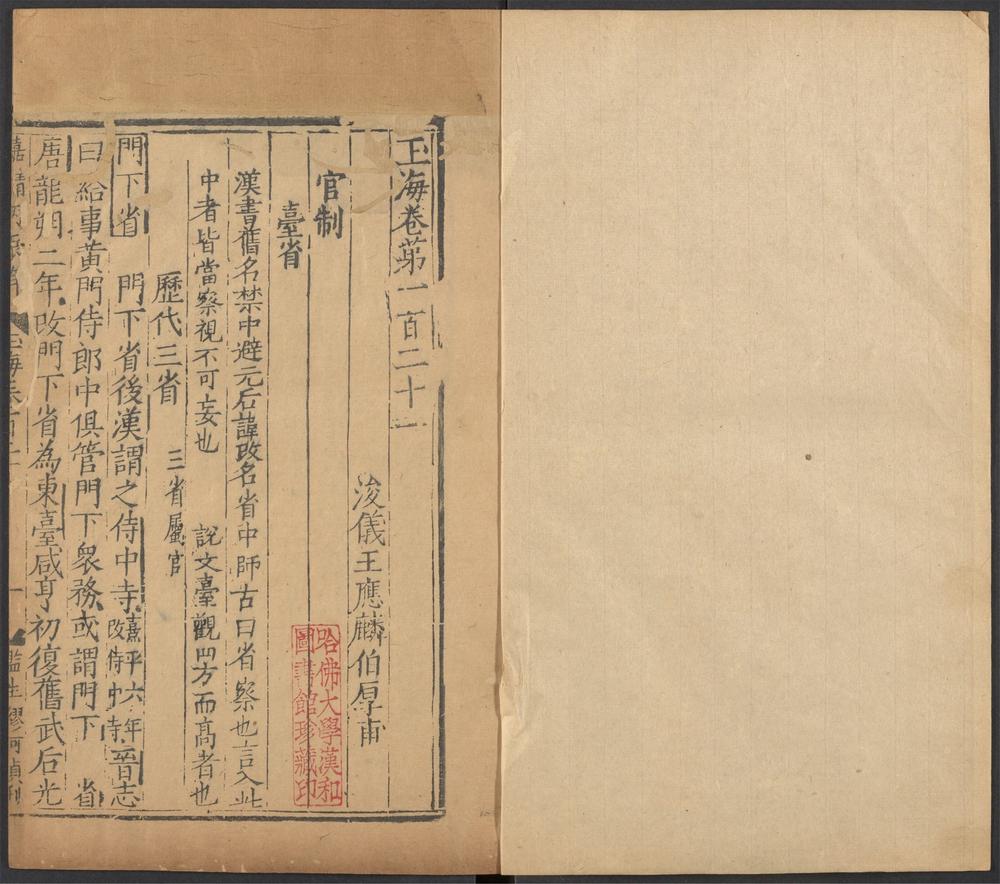 玉海卷第一百二十一
浚儀王應麟伯厚甫
官制
臺省
漢書舊名禁中避元后諱改名省中師古曰省察也言入此
中者皆當察視不可妄也 說文臺觀四方而高者也
歷代三省 三省屬官
門下省 門下省後漢謂之侍中寺嘉平六年改侍中寺晉志
曰給事黃門侍郎中俱管門下衆務或謂門下 省
唐龍朔二年改門下省為東臺咸亨初復舊武后光
嘉靖丙辰 玉海 一 監生繆 刊
哈佛大學漢和
圖書館珍藏印